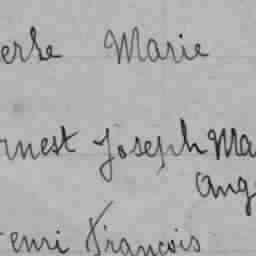 Marie
rnest Joseph Ma
Ang
enri François